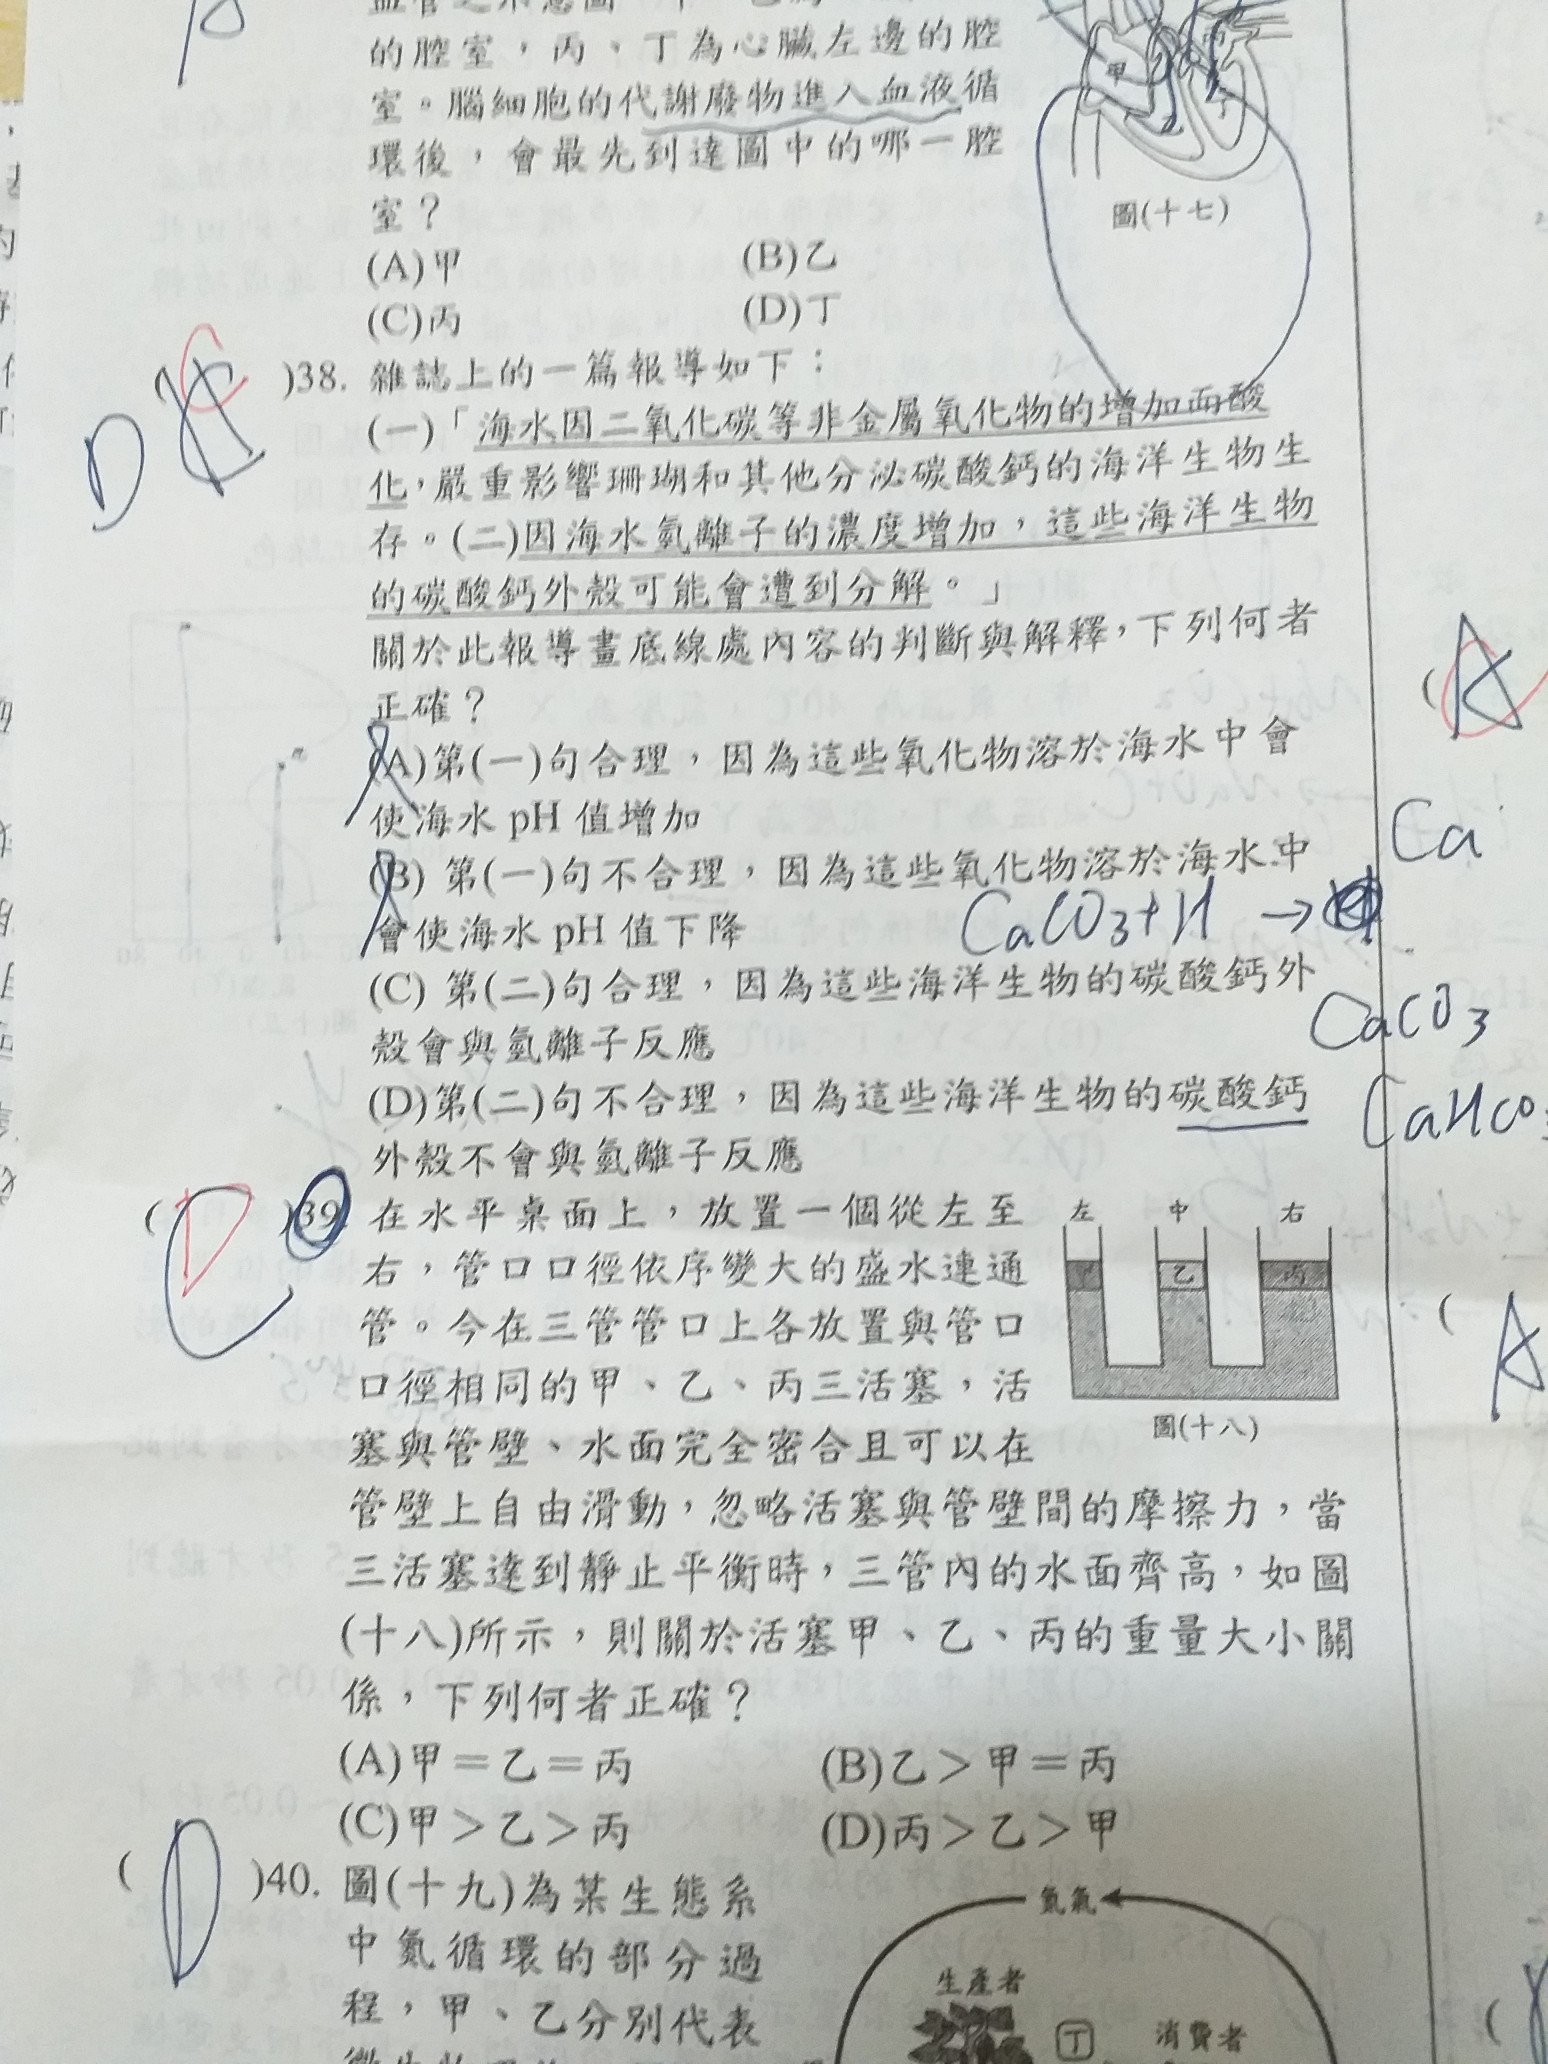 的腔室，丙、丁為心臟左邊的腔
室。腦細胞的代謝廢物進入血液循
環後，會最先到達圖中的哪一腔
室？
(A)甲 (B)乙
(C)丙 (D)丁
甲
圖(十七)
D
)38. 雜誌上的一篇報導如下：
(一)「海水因二氧化碳等非金屬氧化物的增加而酸
化，嚴重影響珊瑚和其他分泌碳酸鈣的海洋生物生
存。(二)因海水氫離子的濃度增加，這些海洋生物
的碳酸鈣外殼可能會遭到分解。」
關於此報導畫底線處內容的判斷與解釋，下列何者
正確？
(A)第(一)句合理，因為這些氧化物溶於海水中會
使海水 pH 值增加
(B) 第(一)句不合理，因為這些氧化物溶於海水中
會使海水 pH 值下降
CaCO3+H →
(C) 第(二)句合理，因為這些海洋生物的碳酸鈣外
殼會與氫離子反應
(D)第(二)句不合理，因為這些海洋生物的碳酸鈣
外殼不會與氫離子反應
A
Ca
CaCO3
CaHCO3
( D )39. 在水平桌面上，放置一個從左至
右，管口口徑依序變大的盛水連通
管。今在三管管口上各放置與管口
口徑相同的甲、乙、丙三活塞，活
塞與管壁、水面完全密合且可以在
管壁上自由滑動，忽略活塞與管壁間的摩擦力，當
三活塞達到靜止平衡時，三管內的水面齊高，如圖
(十八)所示，則關於活塞甲、乙、丙的重量大小關
係，下列何者正確？
(A)甲＝乙＝丙 (B)乙＞甲＝丙
(C)甲＞乙＞丙 (D)丙＞乙＞甲
左 中 右
乙 丙
圖(十八)
A
( D )40. 圖(十九)為某生態系
中氮循環的部分過
程，甲、乙分別代表
氮氣
生產者
丁 消費者